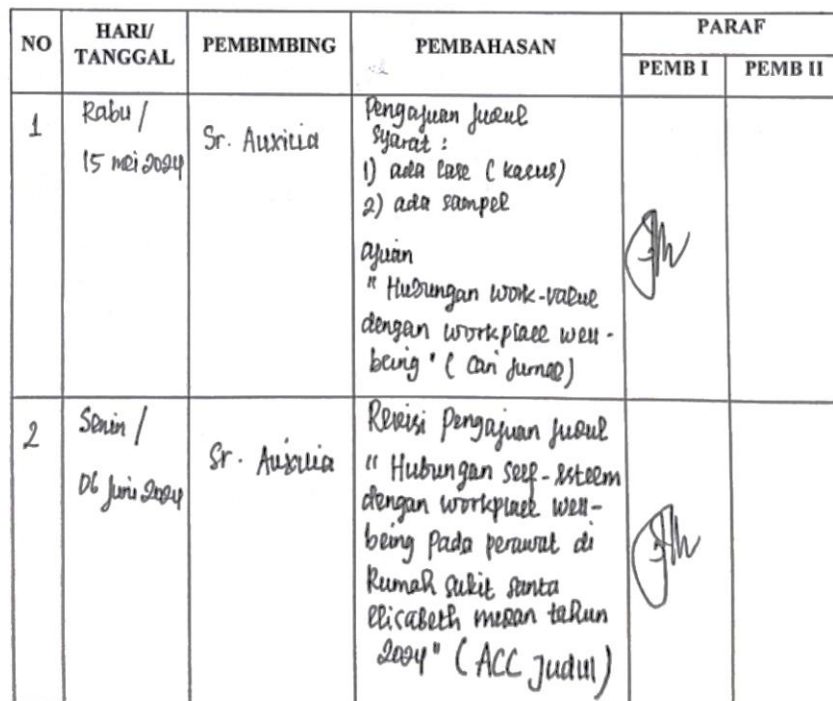 NO HARI/ TANGGAL PEMBIMBING PEMBAHASAN PARAF
PEMB I PEMB II
1
Rabu /
15 mei 2024
Sr. Auxilia
Pengajuan Judul
Syarat :
1) ada case ( kasus)
2) ada sampel
ajuan
" Hubungan work-value
dengan workplace well-
being " ( Cari Jurnal)
2
Senin /
06 Juni 2024
Sr. Auxilia
Revisi Pengajuan Judul
" Hubungan self-esteem
dengan workplace well-
being Pada perawat di
Rumah Sakit Santa
Elisabeth medan tahun
2024" ( ACC Judul)